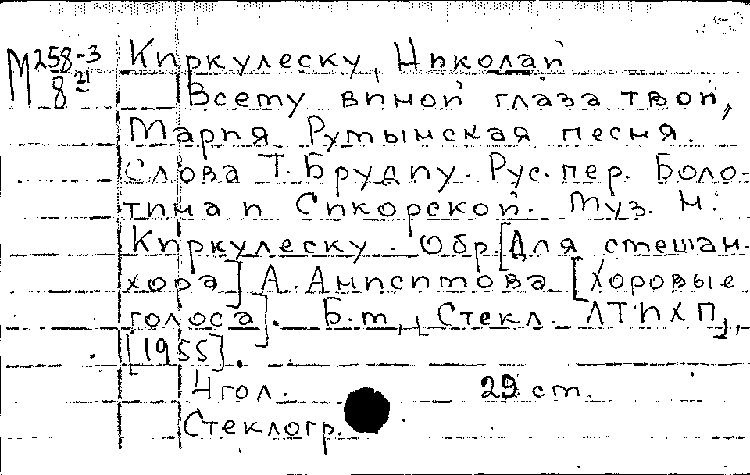 М 258-3/8 21
Киркулеску, Николай
Всему виной глаза твои,
Мария Румынская песня.
Слова Т. Брудиу. Рус. пер. Боло-
тина и Сикорской. Муз. Н.
Киркулеску. Обр. [Для смешан.
хора] А. Анисимова [Хоровые
голоса]. Б.м., [Стекл. ЛТИХП],
[1955].
4 гол. 29 см.
Стеклогр.